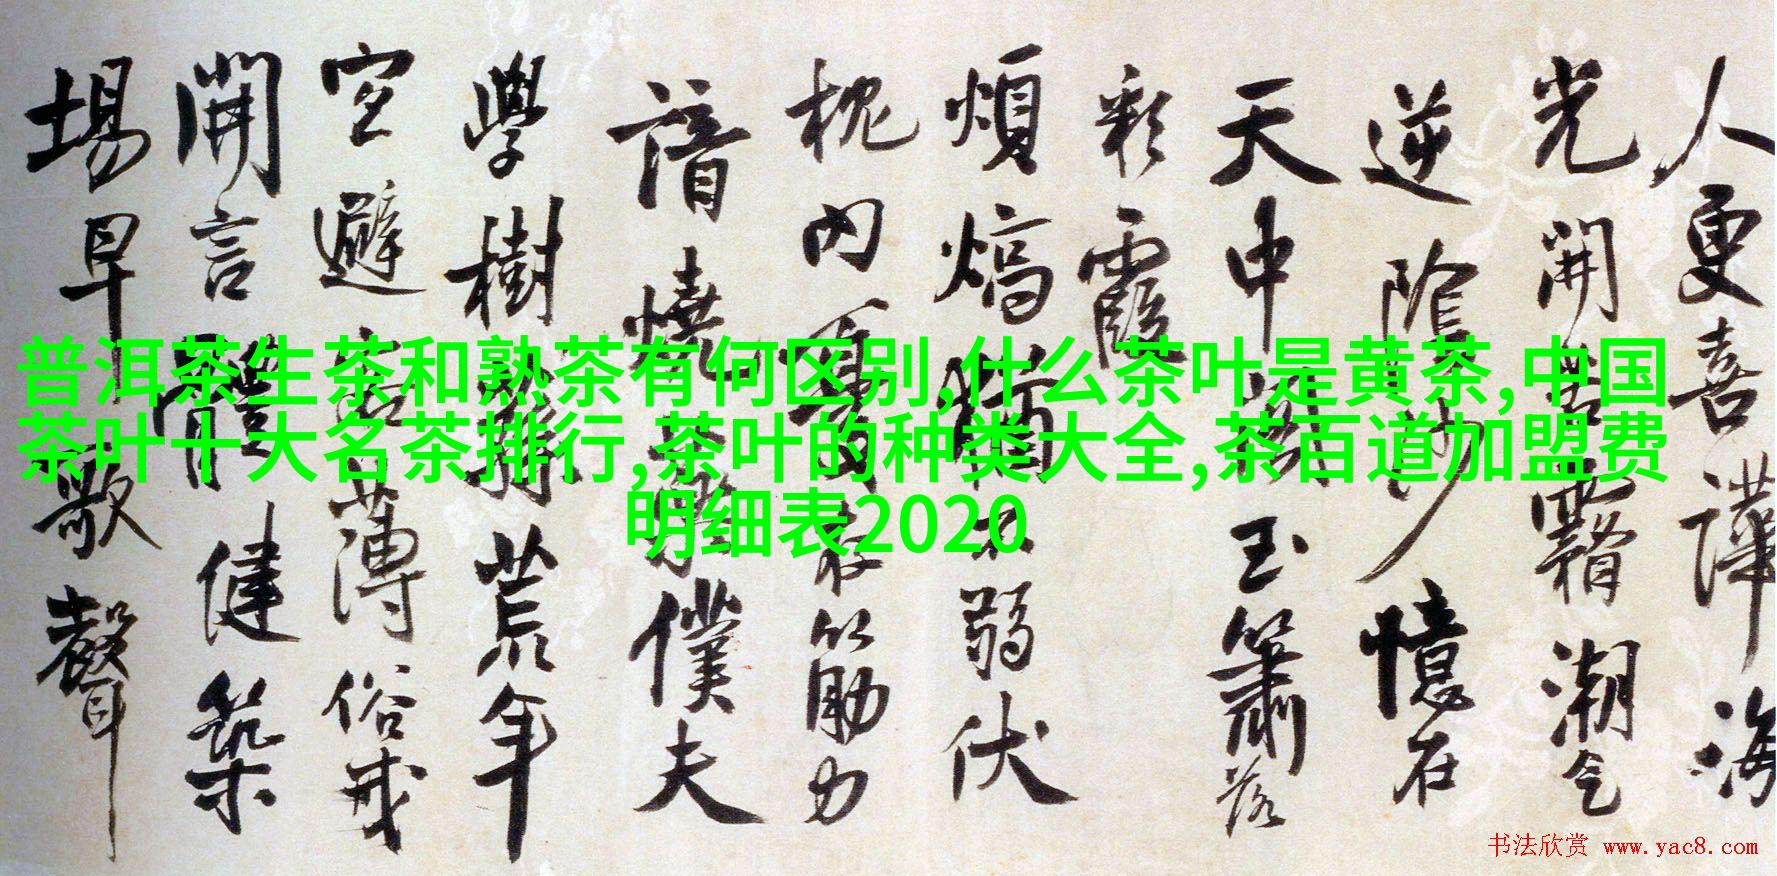 人更喜譁海
光開潮气
逆陰沙憶在
天中玉簫落
彩霞
煩熇弱伏
枕内筋力
諳僕夫
學樹荒年
空避薄俗
開言體健築
場早歌聲
普洱茶生茶和熟茶有何区别,什么茶叶是黄茶,中国
茶叶十大名茶排行,茶叶的种类大全,茶百道加盟费
明细表2020
书法欣赏 www.yac8.com